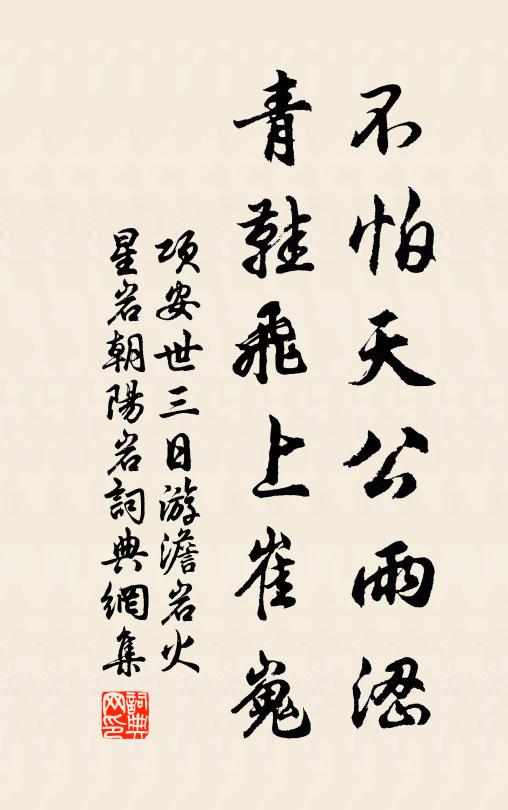 不怕天公雨澀
青鞋飛上崔嵬
項安世三日游澹岩火
星岩朝陽岩詞典網集
詞典
网印